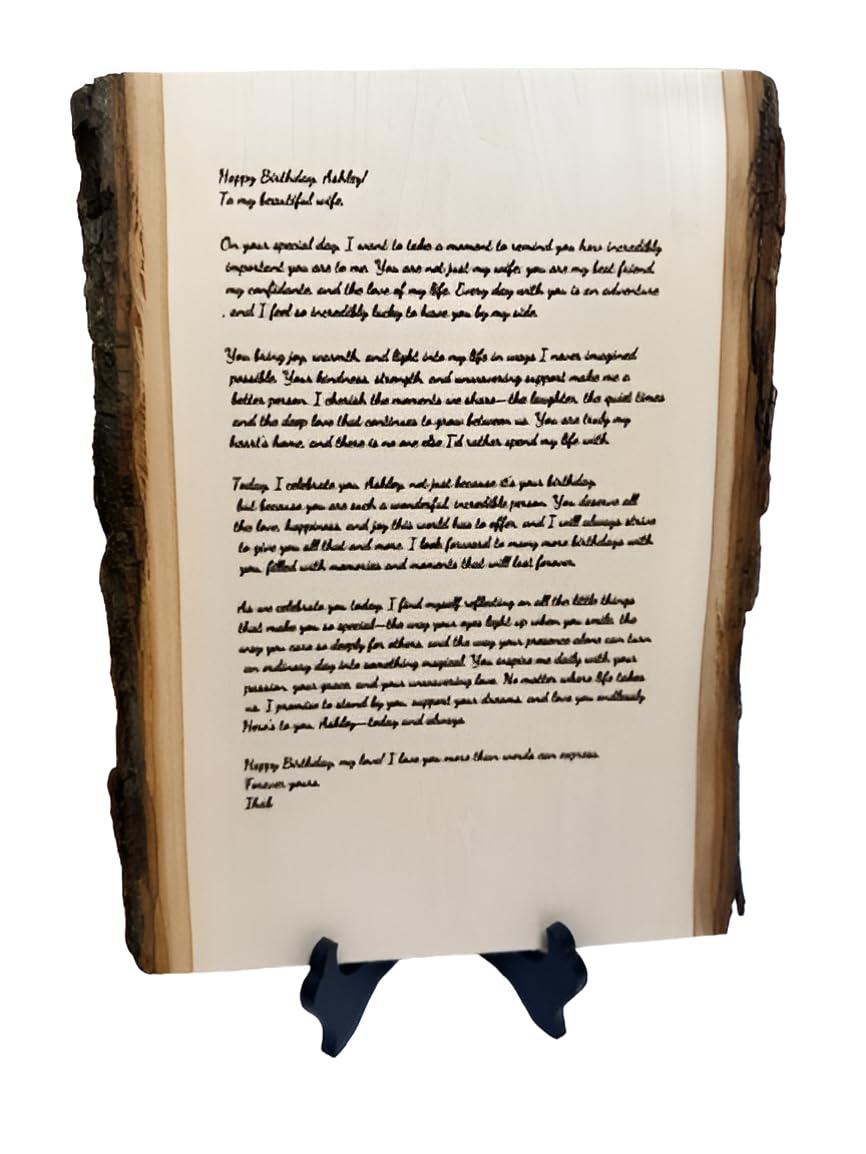 Happy Birthday, Ashley!
To my beautiful wife,
On your special day, I want to take a moment to remind you how incredibly
important you are to me. You are not just my wife; you are my best friend,
my confidante, and the love of my life. Every day with you is an adventure
, and I feel so incredibly lucky to have you by my side.
You bring joy, warmth, and light into my life in ways I never imagined
possible. Your kindness, strength, and unwavering support make me a
better person. I cherish the moments we share—the laughter, the quiet times
and the deep love that continues to grow between us. You are truly my
heart's home, and there is no one else I'd rather spend my life with.
Today, I celebrate you, Ashley, not just because it's your birthday,
but because you are such a wonderful, incredible person. You deserve all
the love, happiness, and joy this world has to offer, and I will always strive
to give you all that and more. I look forward to many more birthdays with
you, filled with memories and moments that will last forever.
As we celebrate you today, I find myself reflecting on all the little things
that make you so special—the way your eyes light up when you smile, the
way you care so deeply for others, and the way your presence alone can turn
an ordinary day into something magical. You inspire me daily with your
passion, your grace, and your unwavering love. No matter where life takes
us, I promise to stand by you, support your dreams, and love you endlessly.
Here's to you, Ashley—today and always.
Happy Birthday, my love! I love you more than words can express.
Forever yours,
Ihab